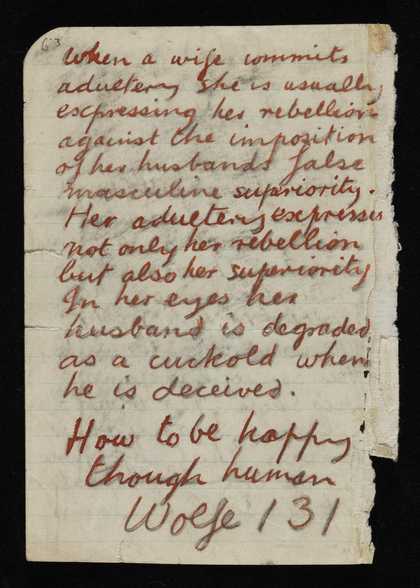 63
When a wife commits
adultery she is usually
expressing her rebellion
against the imposition
of her husbands false
masculine supriority.
Her adultery expresses
not only her rebellion
but also her superiority
In her eyes her
husband is degraded
as a cuckold when
he is deceived.
How to be happy
though human
Wolfe 131